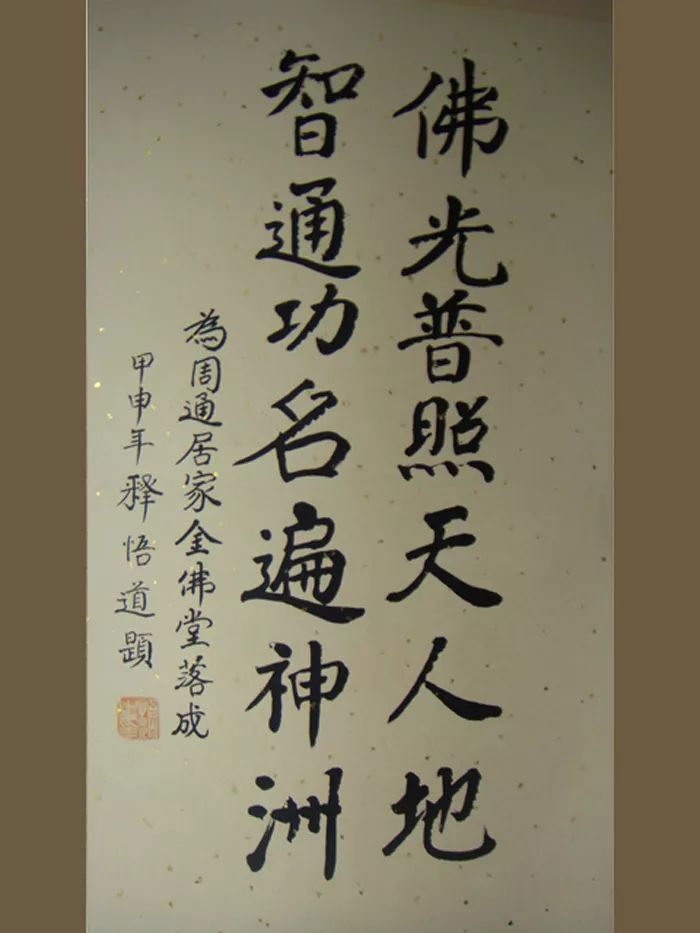 佛光普照天人地
智通功名遍神洲
為周通居家金佛堂落成
甲申年釋悟道題